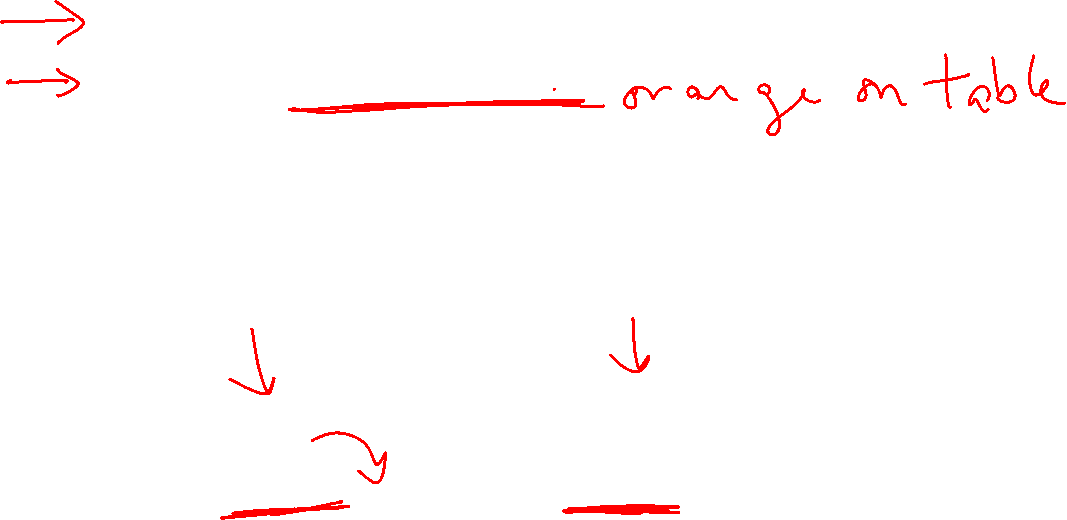 orange on table